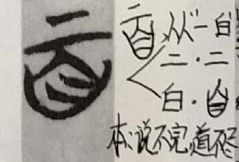 从一白
二·二
白·
本说不完道不尽